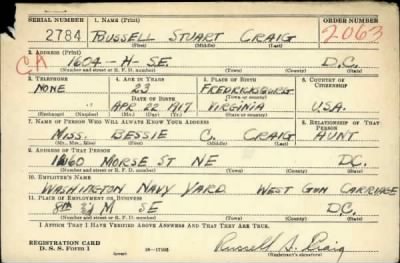 SERIAL NUMBER 1. NAME (Print) ORDER NUMBER
2784 RUSSELL STUART CRAIG 2063
(First) (Middle) (Last)
2. ADDRESS (Print)
CA 1604-H-SE. D.C.
(Number and street or R. F. D. number) (Town) (County) (State)
3. TELEPHONE 4. AGE IN YEARS 5. PLACE OF BIRTH 6. COUNTRY OF CITIZENSHIP
NONE 23 FREDRICKSBURG
DATE OF BIRTH (Town or county)
APR 22 1917 VIRGINIA U.S.A.
(Exchange) (Number) (Mo.) (Day) (Yr.) (State or country)
7. NAME OF PERSON WHO WILL ALWAYS KNOW YOUR ADDRESS 8. RELATIONSHIP OF THAT PERSON
MISS. BESSIE C. CRAIG AUNT
(Mr., Mrs., Miss) (First) (Middle) (Last)
9. ADDRESS OF THAT PERSON
MORSE ST NE D.C.
(Number and street or R. F. D. number) (Town) (County) (State)
10. EMPLOYER'S NAME
WASHINGTON NAVY YARD WEST GUN CARRIAGE
11. PLACE OF EMPLOYMENT OR BUSINESS
8th M SE D.C.
(Number and street or R. F. D. number) (Town) (County) (State)
I AFFIRM THAT I HAVE VERIFIED ABOVE ANSWERS AND THAT THEY ARE TRUE.
REGISTRATION CARD
D. S. S. Form 1 (over) Russell S. Craig
(Registrant's signature)